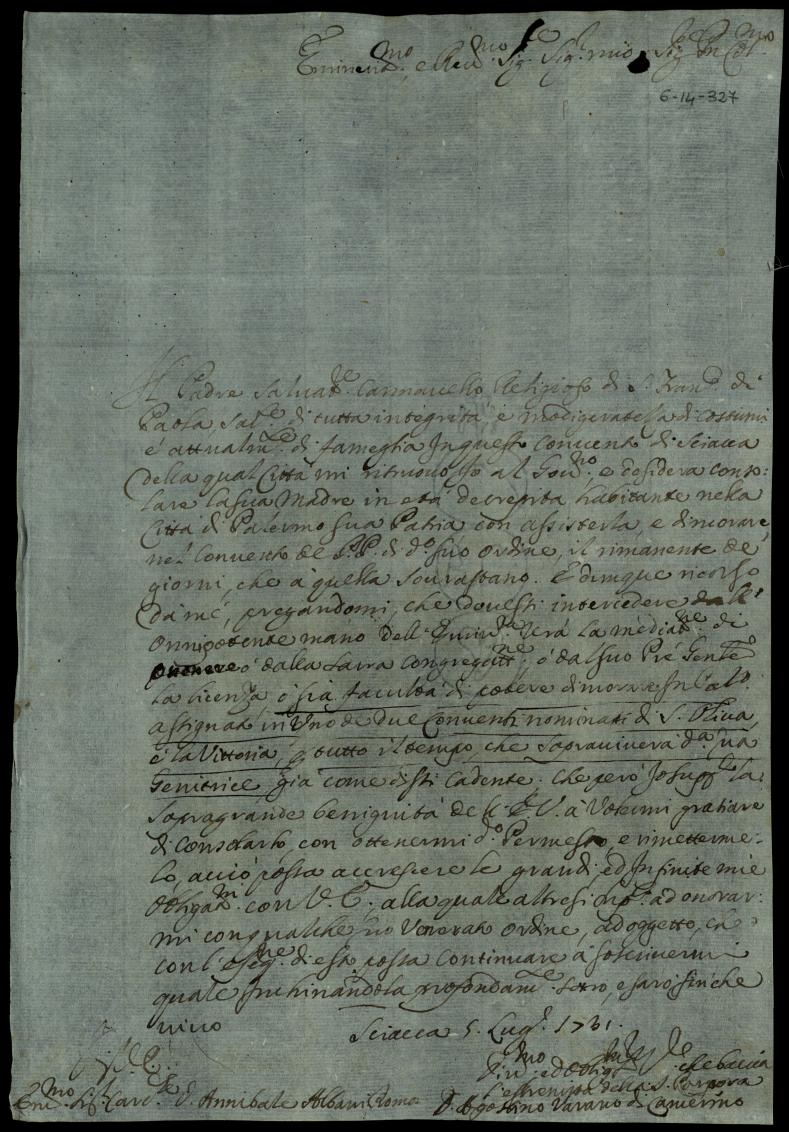 Eminen.mo, e Rev.mo Sig.re Sig.r mio, e Sig.r Pn Col.mo
6-14-327
Il Padre Salvat.re Carmavello Religioso di S. Fran.co di
Paola Sal.e di tutta integrità, e modigeratezza di costumi
è attualm.te di fameglia In questo convento di Sciacca
della qual Città mi ritruovo Io al Gov.no e desidera conso:
lare la sua Madre in età decrepita habitante nella
Città di Palermo sua Patria con assisterla, e dimorare
nel Convento de P.P. di d.o suo ordine, il rimanente de
giorni, che à quella sourastano. E dunque ricorso
da me, pregandomi, che dovessi intercedere dall'
onnipotente mano dell' Emin.za V.ra la mediat.ne di
ottenere ò dalla Sacra Congregat.ne, ò dal suo P.re Gen.le
la licenza, ò sia facultà di potere dimorare In
assignat. in Uno de due Conventi nominati di S. Oliva,
è la Vittoria, p tutto il tempo, che sopraviverà d.a sua
Genitrice già come dissi Cadente. Che però Io supp.co la
sopragrande benignità de L' E. V. à Volermi gratiare
di Consolarlo, con ottenermi d.o Permesso, e rimetterme:
lo, acciò possa accrescere le grandi, ed Infinite mie
obbligat.ni con V. E., alla quale altresì sup.co ad onorar:
mi con qualche suo Venerato ordine, ad oggetto, che
con l' eseq.ne di esso possa Continuare à soscrivermi
quale Inchinandola profondam.te sono, e sarò finche
vivo
Sciacca 5. Lug.o 1731.
Em.mo Sig. Card.le D. Annibale Albani Roma
Div.mo ed Oblig.mo Ser.re che baccia
l'estremità della S. Porpora
D. Agostino Varano di Camerino